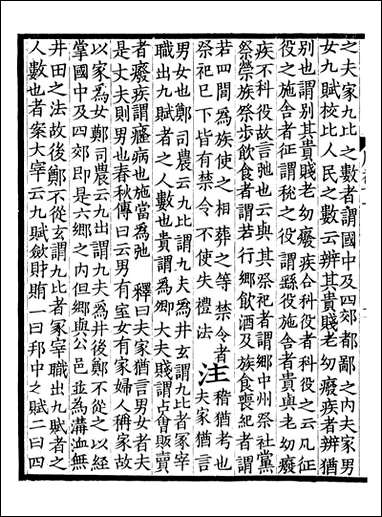 之夫家九比之數者謂國中及四郊都鄙之内夫家男
女九賦校比人民之數云辨其貴賤老幼癈疾者辨猶
别也謂别其貴賤老幼癈疾合科役者科役之云凡征
役之施舍者征謂稅之役謂繇役施舍者貴與老幼癈
疾不科役故言弛也云與其祭祀者謂鄉中州祭社黨
祭禜族祭步飲食者謂若行鄉飲酒及族食喪紀者謂
若四閭為族使之相葬之等禁令者
祭祀巳下皆有禁令不使失禮法 注 稽猶考也夫家猶言
男女也鄭司農云九比謂九夫為井玄謂九比者冡宰
職出九賦者之人數也貴謂為卿大夫賤謂占會販賣
者癈疾謂癃病也施當為弛 釋曰夫家猶言男女者夫
是丈夫則男也春秋傳曰云男有室女有家婦人稱家故
以家為女鄭司農云九出謂九夫為井後鄭不從之以經
掌國中及四郊即是六鄉之内但鄉與公邑並為溝洫無
井田之法故後鄭不從玄謂九比者冡宰職出九賦者之
人數也者案大宰云九賦斂財賄一曰邦中之賦二曰四